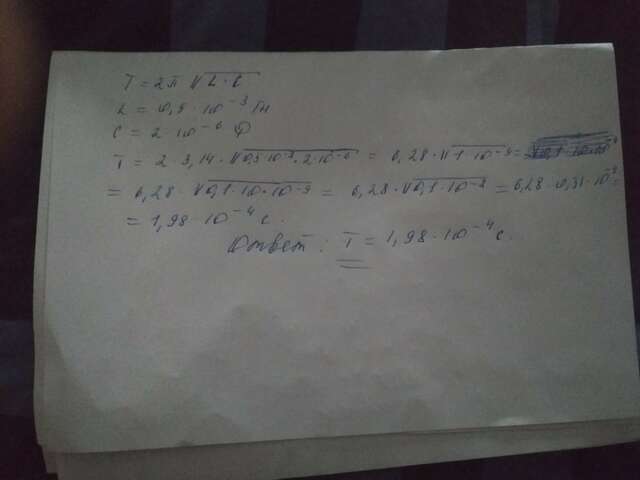 T = 2π √L · C
L = 0,5 · 10⁻³ Гн
C = 2 · 10⁻⁶ Ф
T = 2 · 3,14 · √0,5·10⁻³ · 2·10⁻⁶ = 6,28 · √1 · 10⁻⁹ =
= 6,28 · √0,1 · 10 · 10⁻⁹ = 6,28 · √0,1 · 10⁻⁸ = 6,28 · 0,31 · 10⁻⁴ =
= 1,98 · 10⁻⁴ с.
Ответ: T = 1,98 · 10⁻⁴ с.